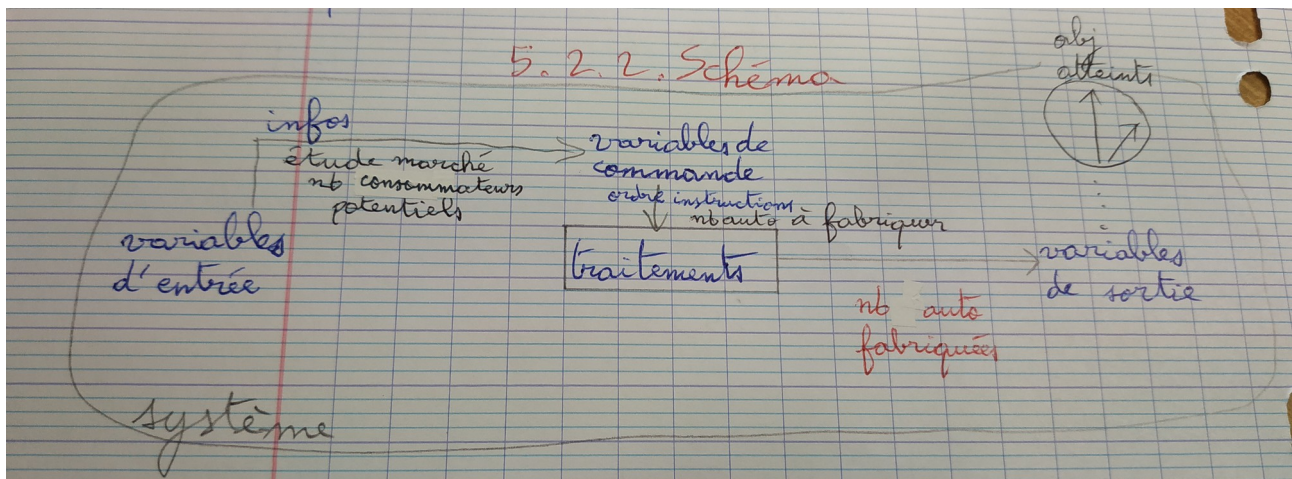 5.2.2. Schéma
obj
atteints
infos
étude marché
nb consommateurs
potentiels
variables de
commande
ordre instructions
nb auto à fabriquer
variables
d'entrée
traitements
variables
de sortie
nb auto
fabriquées
système